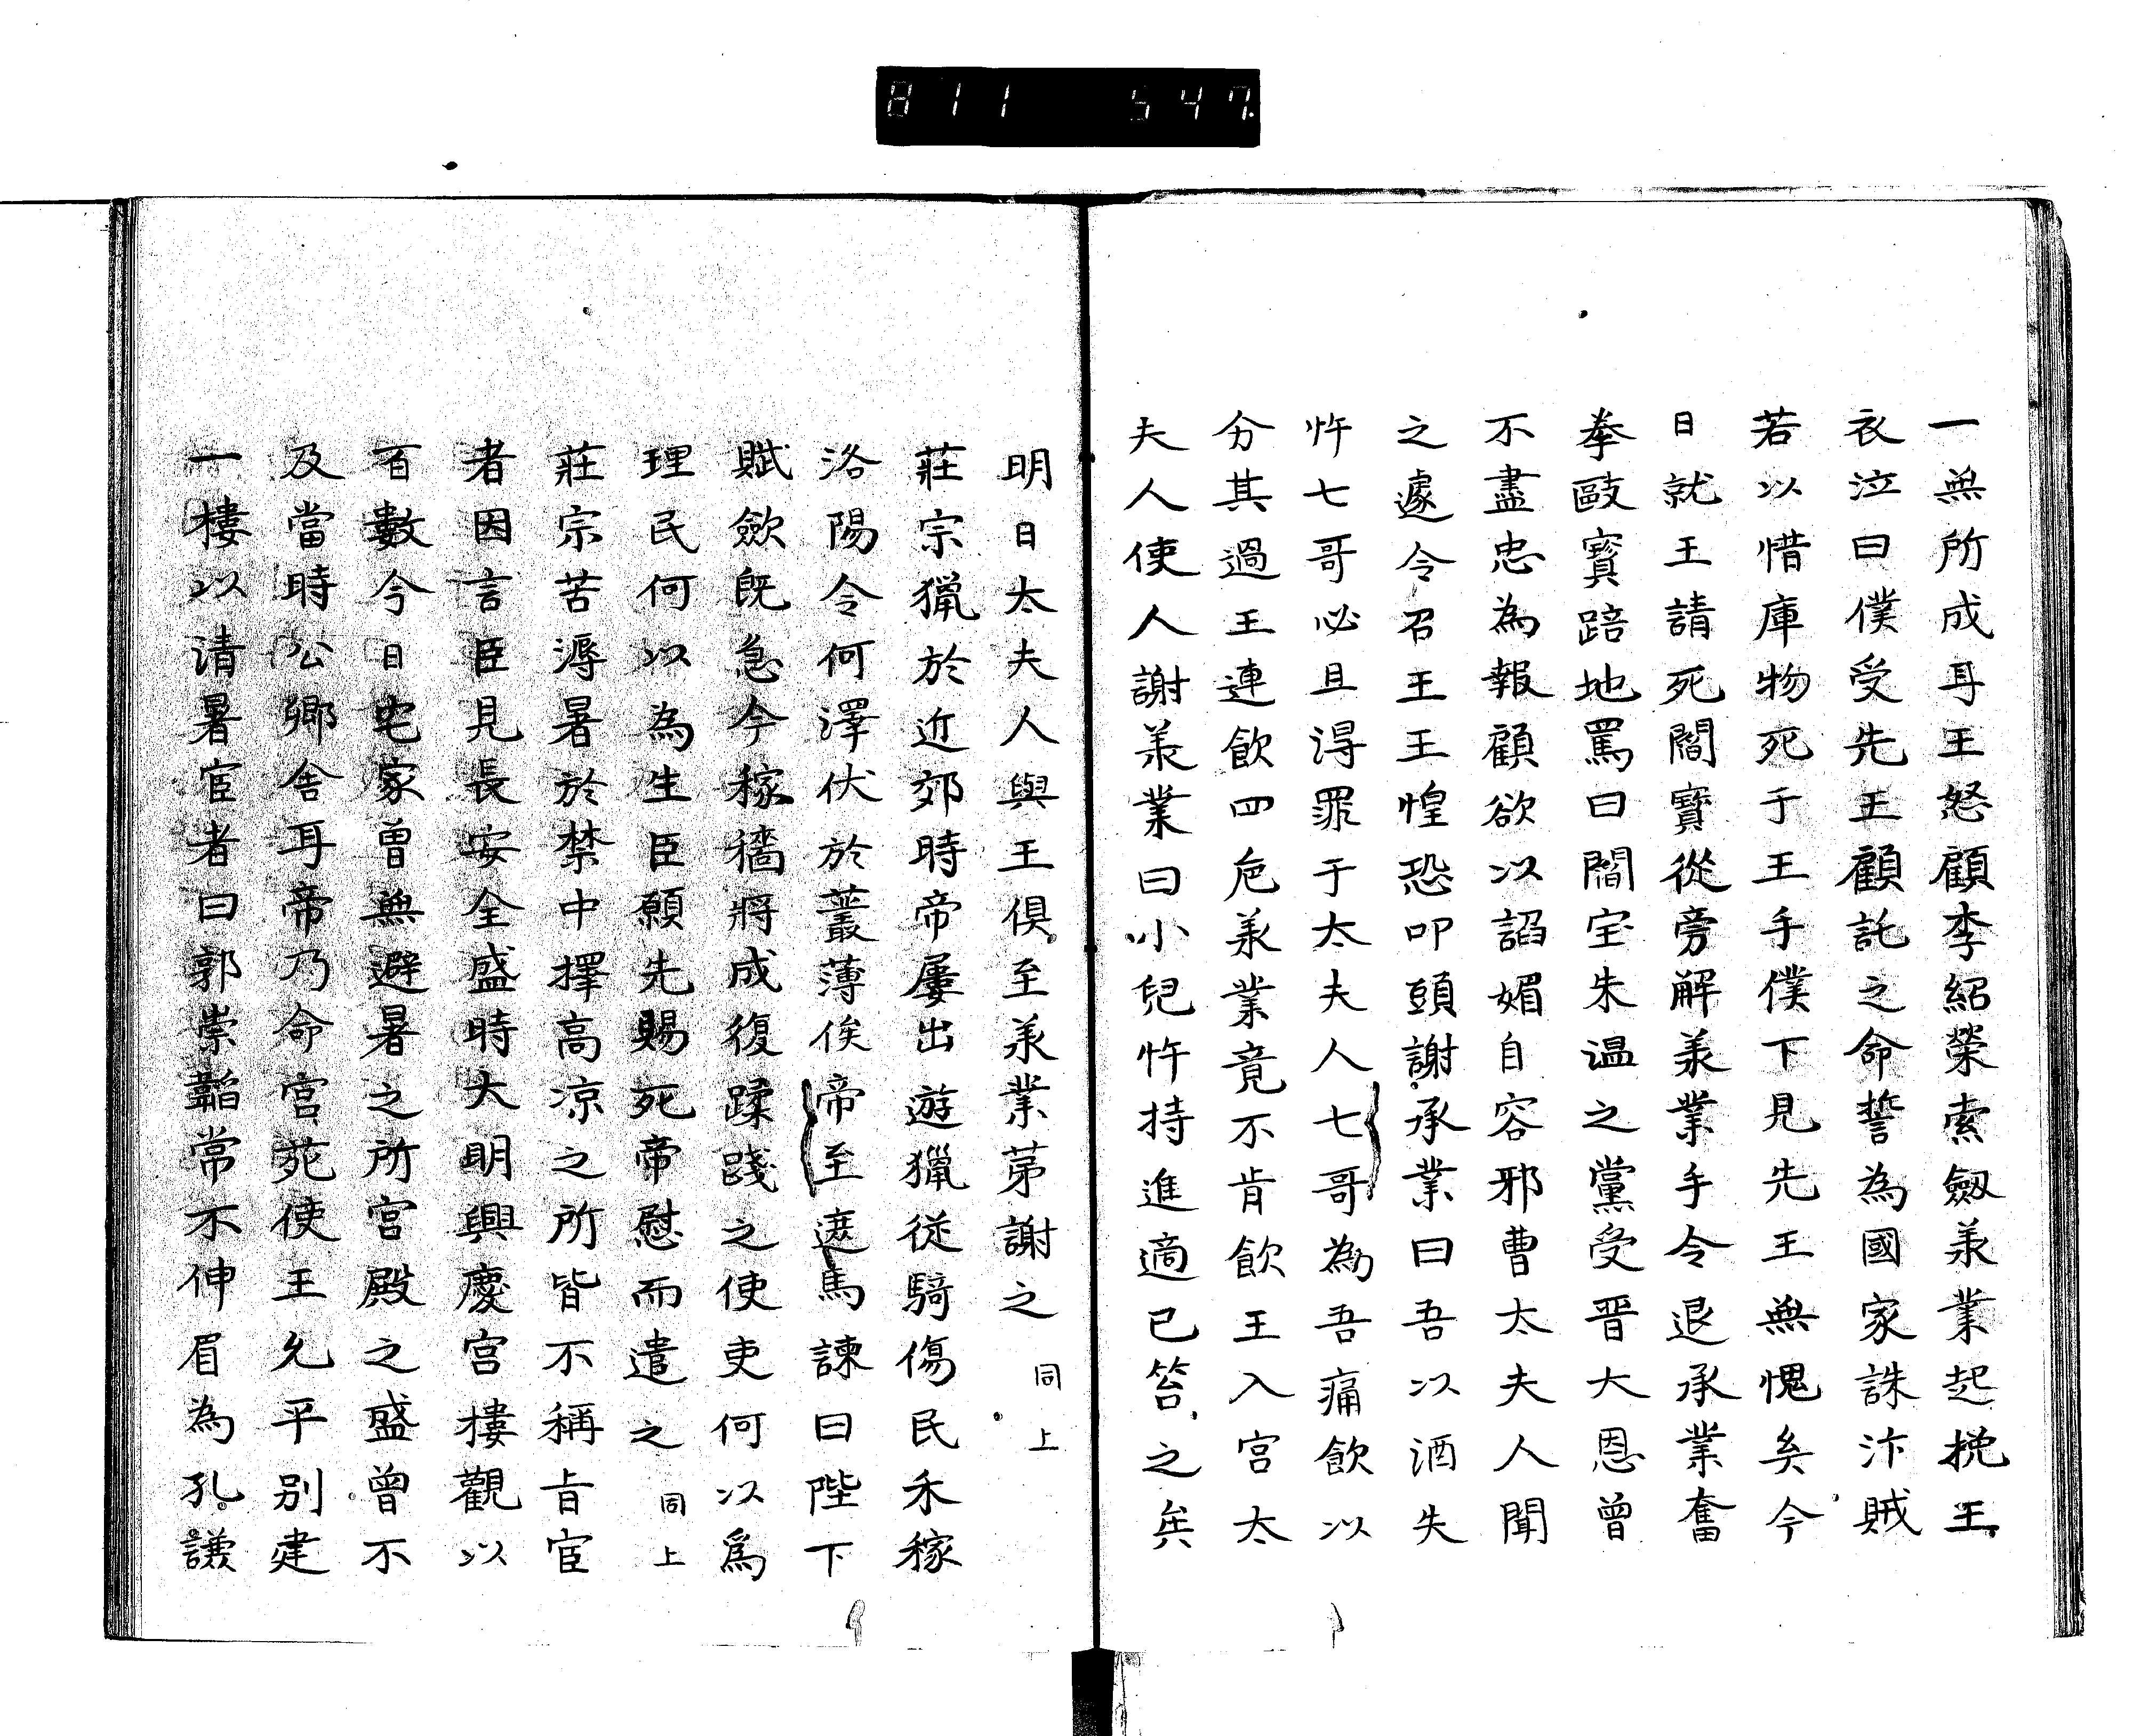 811 547.
一無所成耳王怒顧李紹榮索劔承業起挽王
衣泣曰僕受先王顧託之命誓為國家誅汴賊
若以惜庫物死于王手僕下見先王無愧矣今
日就王請死閻寶從旁解承業手令退承業奮
拳毆寶踣地罵曰閻宝朱温之黨受晋大恩曾
不盡忠為報顧欲以謟媚自容邪曹太夫人聞
之遽令召王王惶恐叩頭謝承業曰吾以酒失
忤七哥必且得罪于太夫人七哥為吾痛飲以
分其過王連飲四卮承業竟不肯飲王入宫太
夫人使人謝承業曰小兒忤持進適已笞之矣
明日太夫人與王俱至承業苐謝之 同上
莊宗獵於近郊時帝屢出遊獵従騎傷民禾稼
洛陽令何澤伏於叢薄俟帝至遮馬諫曰陛下
賦斂既急今稼穡將成復蹂踐之使吏何以爲
理民何以為生臣願先賜死帝慰而遣之 同上
莊宗苦溽暑於禁中擇高凉之所皆不稱旨宦
者因言臣見長安全盛時大明興慶宫樓觀以
百數今日宅家曾無避暑之所宫殿之盛曾不
及當時公卿舎耳帝乃命宫苑使王允平别建
一樓以清暑宦者曰郭崇韜常不伸眉為孔謙